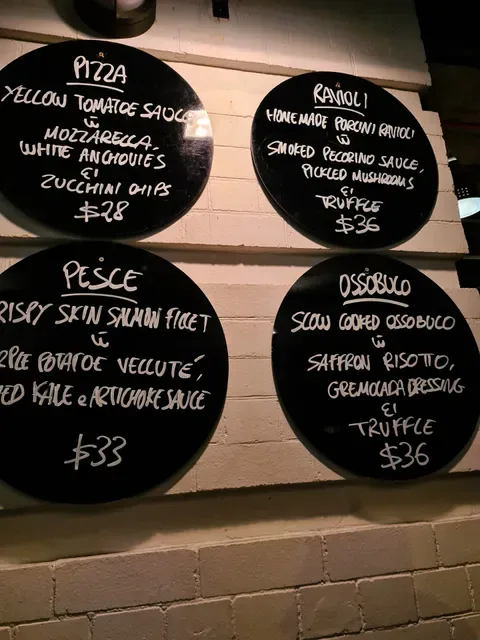 PIZZA
YELLOW TOMATOE SAUCE
W
MOZZARELLA,
WHITE ANCHOVIES
&
ZUCCHINI CHIPS
$28
RAVIOLI
HOMEMADE PORCINI RAVIOLI
W
SMOKED PECORINO SAUCE,
PICKLED MUSHROOMS
&
TRUFFLE
$36
PESCE
RISPY SKIN SALMON FILLET
W
RPLE POTATOE VELLUTÉ,
ED KALE e ARTICHOKE SAUCE
$33
OSSOBUCO
SLOW COOKED OSSOBUCO
W
SAFFRON RISOTTO,
GREMOLADA DRESSING
&
TRUFFLE
$36